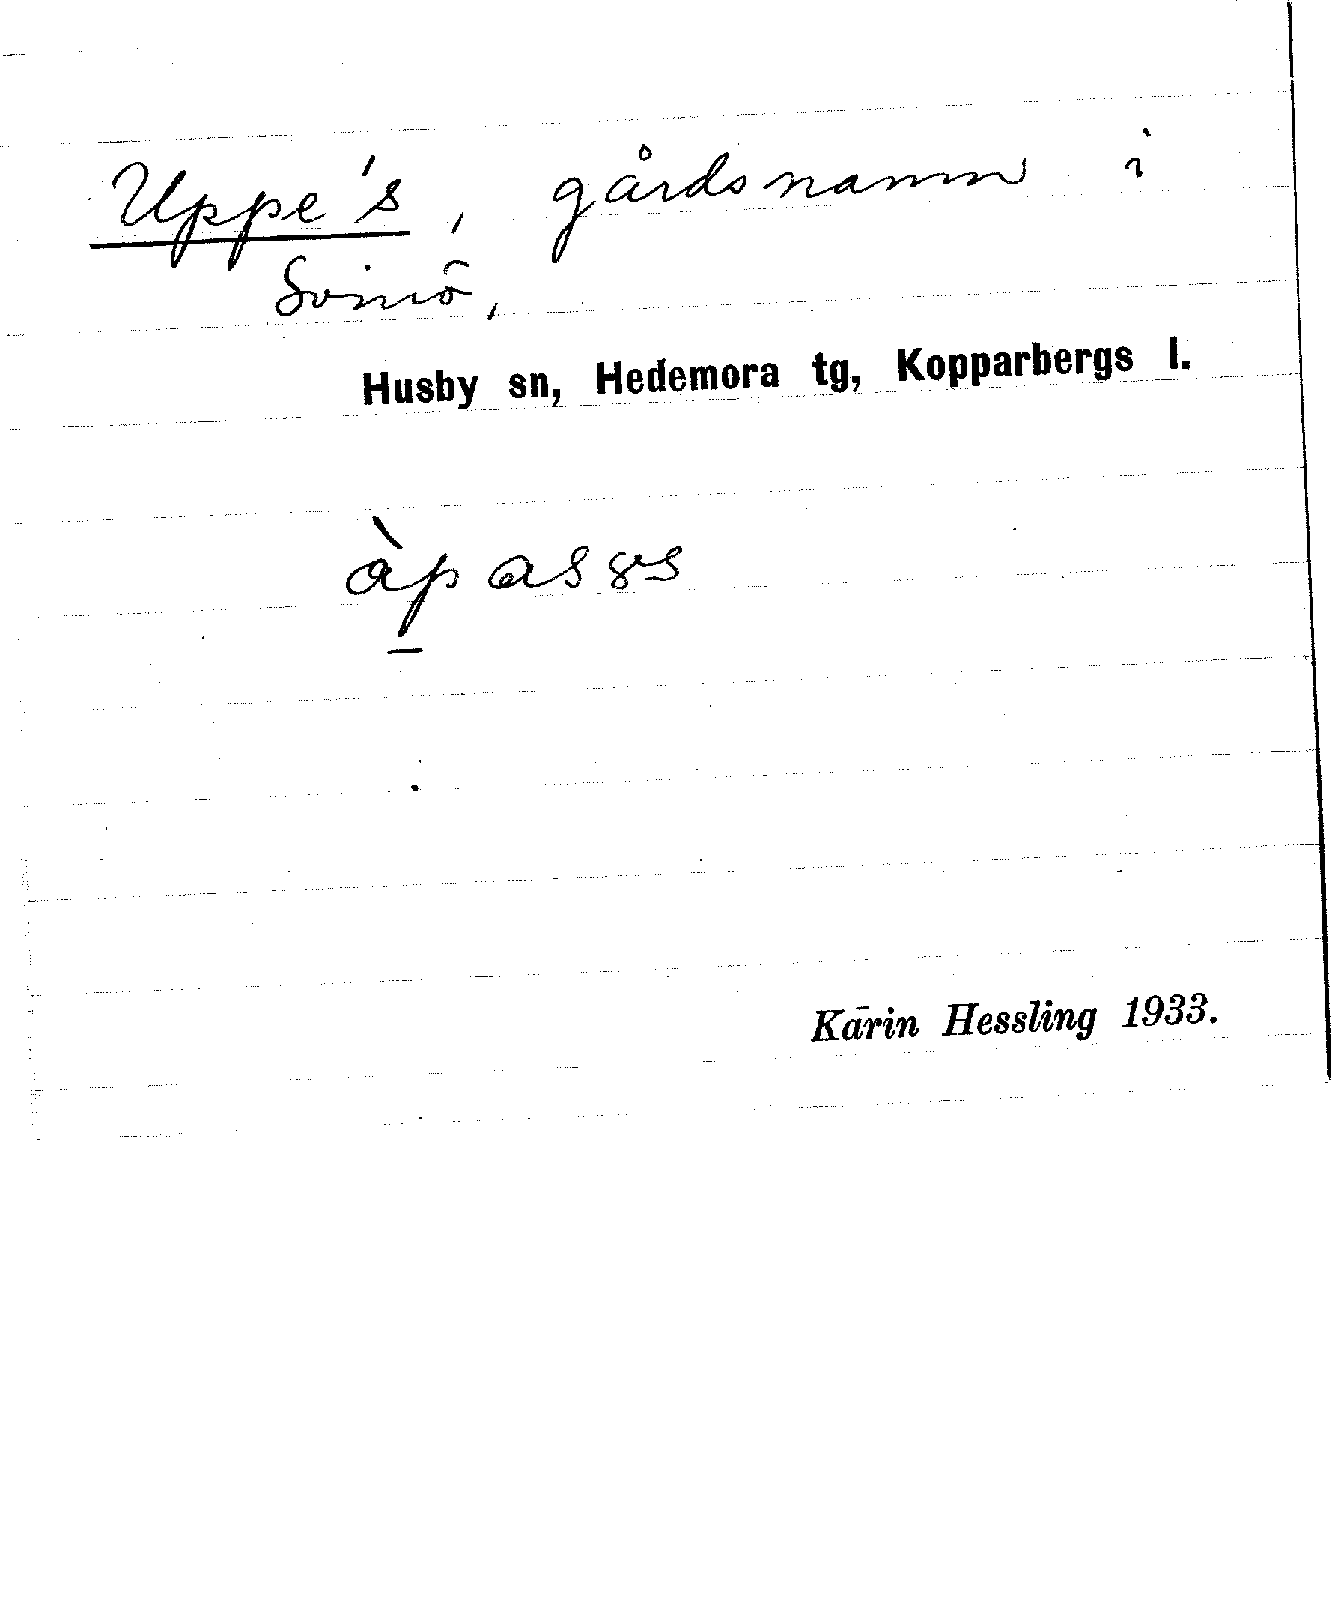 Uppe's, gårdsnamn i
Svinö,
Husby sn, Hedemora tg, Kopparbergs l.
Karin Hessling 1933.